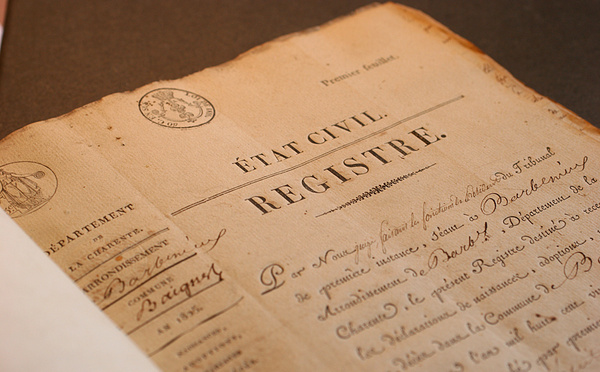 Premier feuillet.
ÉTAT CIVIL.
REGISTRE.
DÉPARTEMENT
DE
LA CHARENTE.
ARRONDISSEMENT
Barbezieux
COMMUNE
Par Nous juge faisant les fonctions de du Tribunal
de première instance, séant à Barbezieux
Arrondissement de Barb.x, Département de la
Charente, le présent Registre destiné à
les déclarations de naissance, adoptions,
décès dans la Commune de
l'an mil huit cent
par